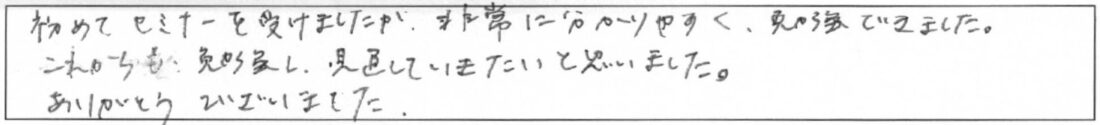 初めてセミナーを受けましたが、非常に分かりやすく、勉強できました。
これからも、勉強し、見直していきたいと思いました。
ありがとうございました.